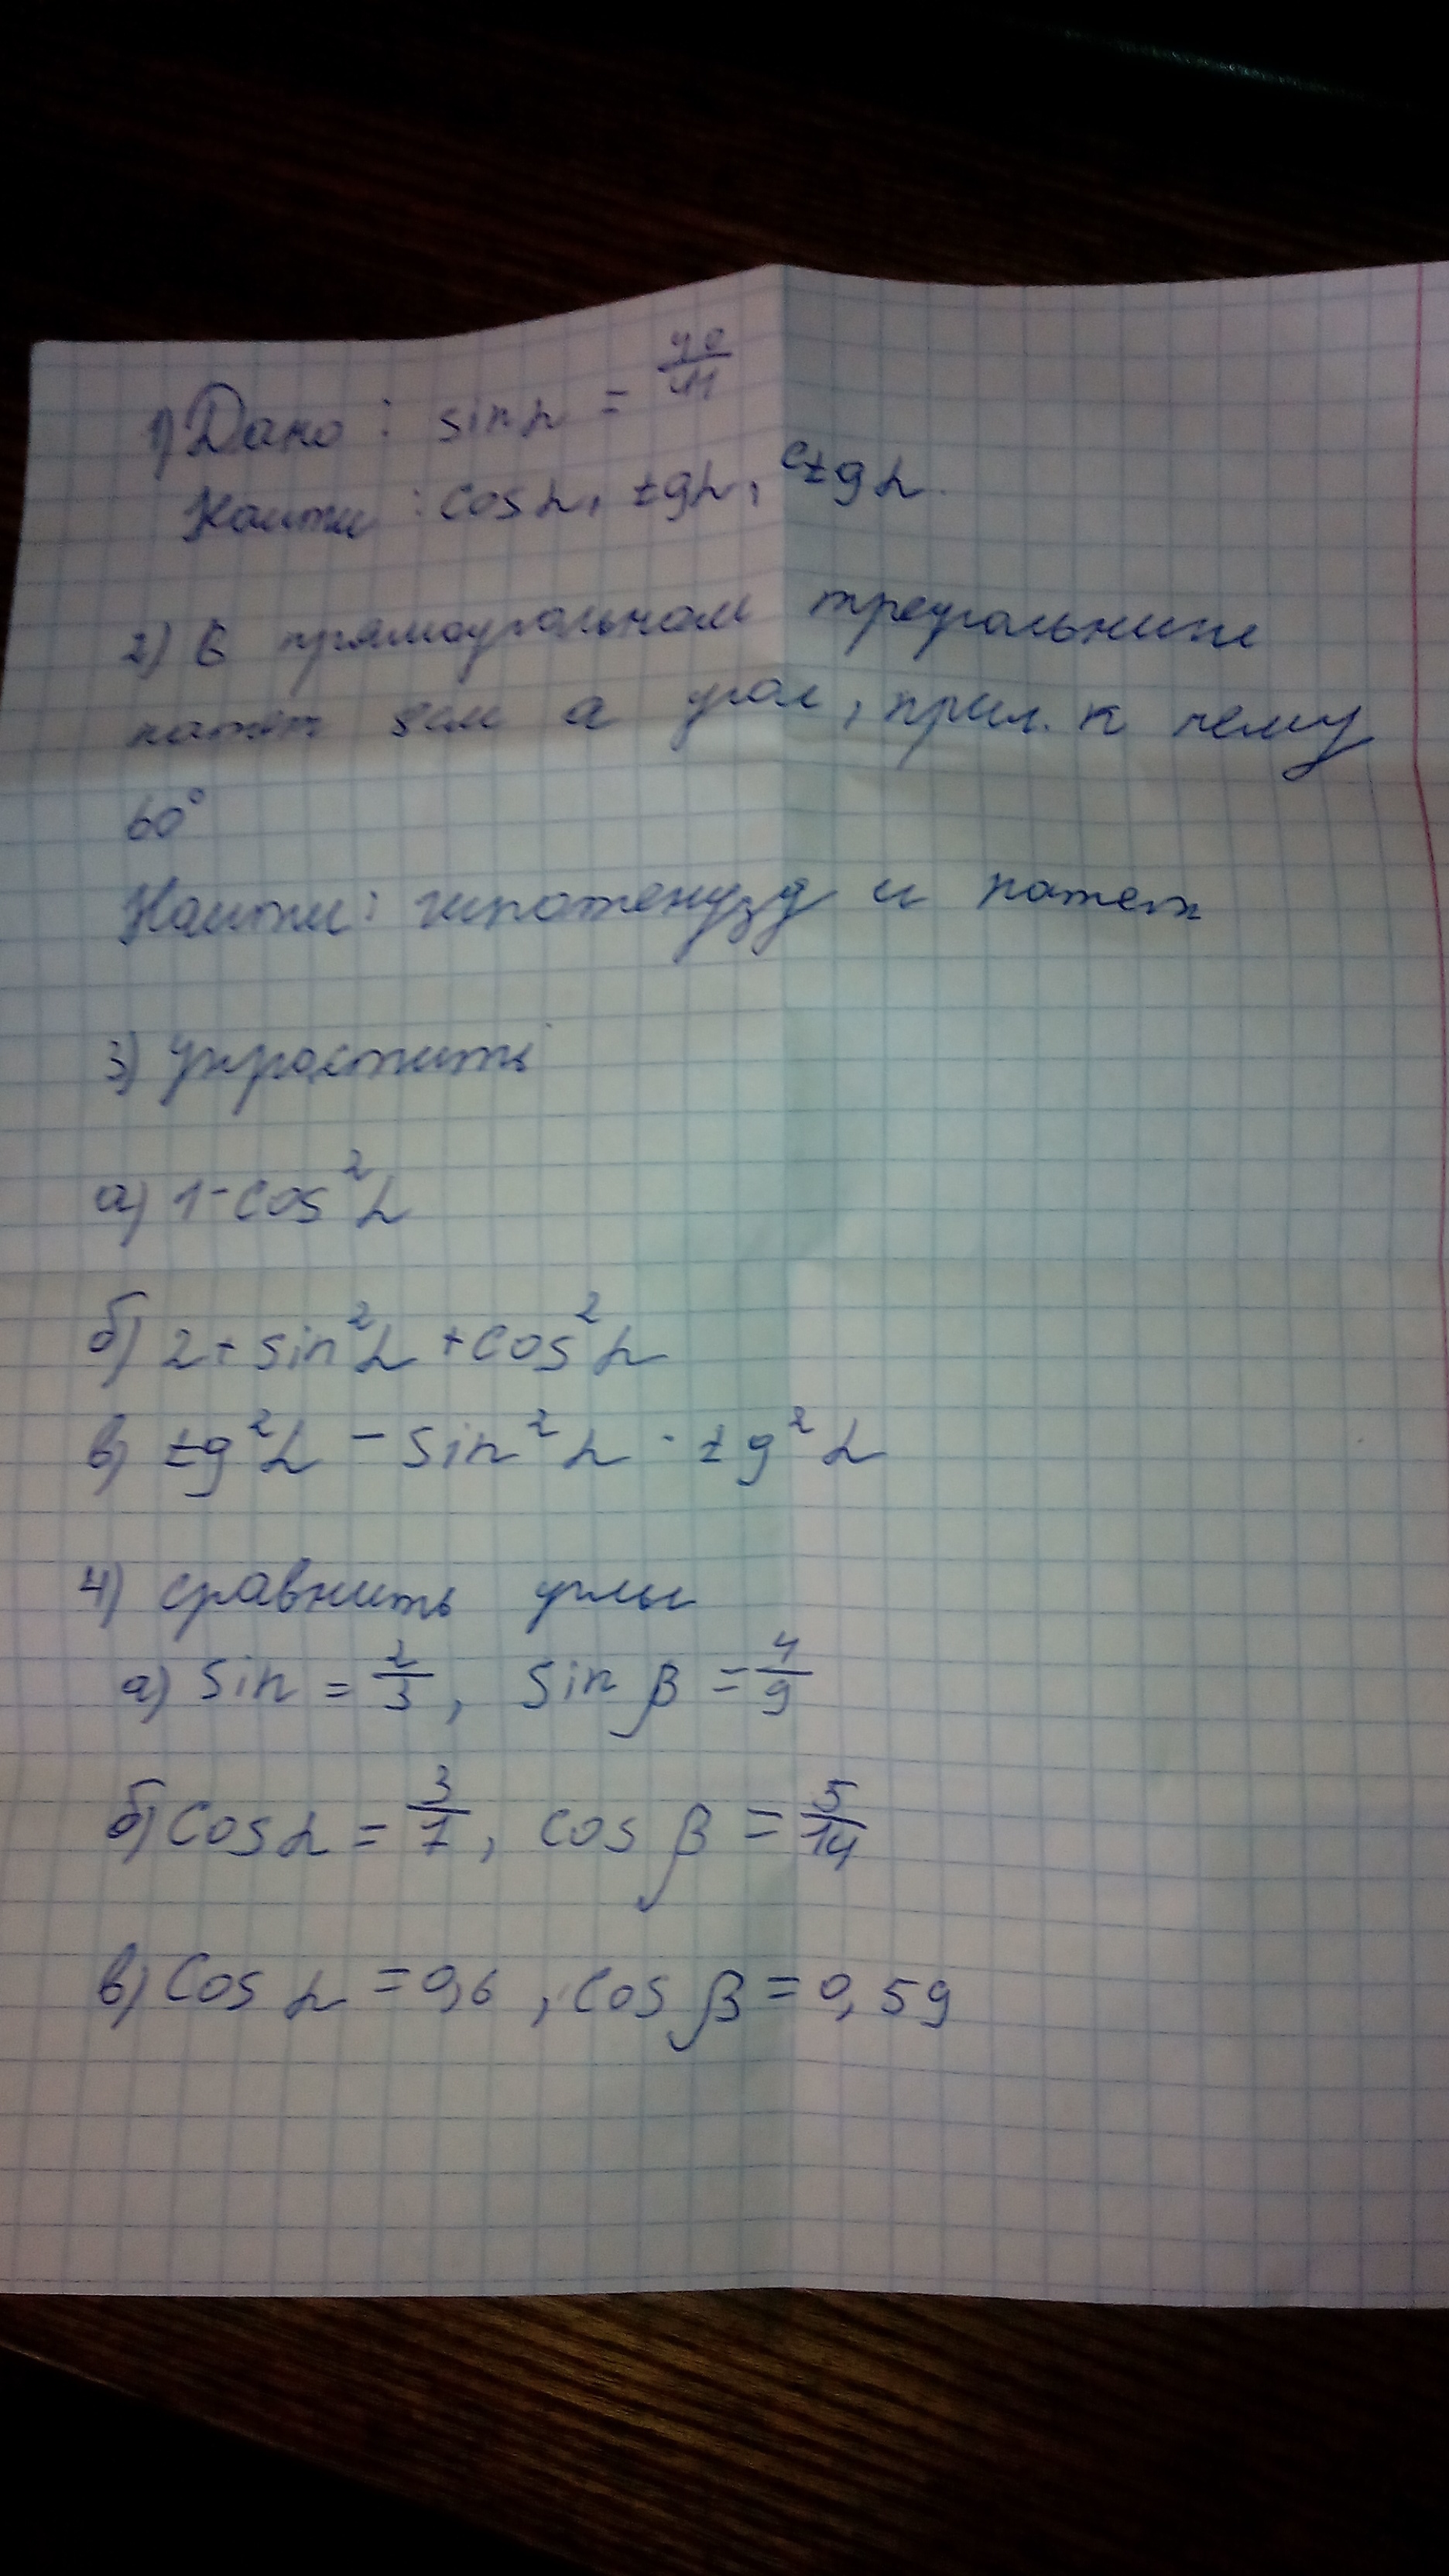 1) Дано: sin α = 40/41
Найти: cos α, tg α, ctg α.
2) В прямоугольном треугольнике
катет 8см а угол, прил. к нему
60°
Найти: гипотенузу и катет
3) упростить
а) 1-cos²α
б) 2+sin²α+cos²α
в) tg²α - sin²α · tg²α
4) сравнить углы
а) sin = 2/3, sin β = 4/9
б) cos α = 3/7, cos β = 5/14
в) cos α = 0,6, cos β = 0,59